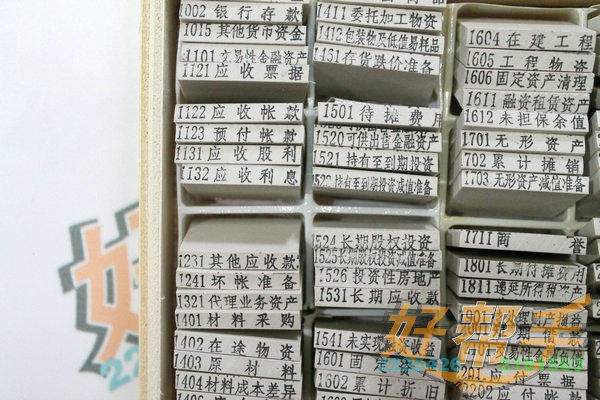 1002 银行存款
1015 其他货币资金
1101 交易性金融资产
1121 应收票据
1122 应收帐款
1123 预付帐款
1131 应收股利
1132 应收利息
1231 其他应收款
1241 坏帐准备
1321 代理业务资产
1401 材料采购
1402 在途物资
1403 原材料
1404 材料成本差异
1411 委托加工物资
1412 包装物及低值易耗品
1461 存货跌价准备
1501 待摊费用
1520 可供出售金融资产
1521 持有至到期投资
1522 持有至到期投资减值准备
1524 长期股权投资
1525 长期股权投资减值准备
1526 投资性房地产
1531 长期应收款
1541 未实现融资收益
1601 固定资
1602 累计折旧
1604 在建工程
1605 工程物资
1606 固定资产清理
1611 融资租赁资产
1612 未担保余值
1701 无形资产
702 累计摊销
1703 无形资产减值准备
1711 商誉
1801 长期待摊费用
1811 递延所得税资产
2202 应付帐
好帮手